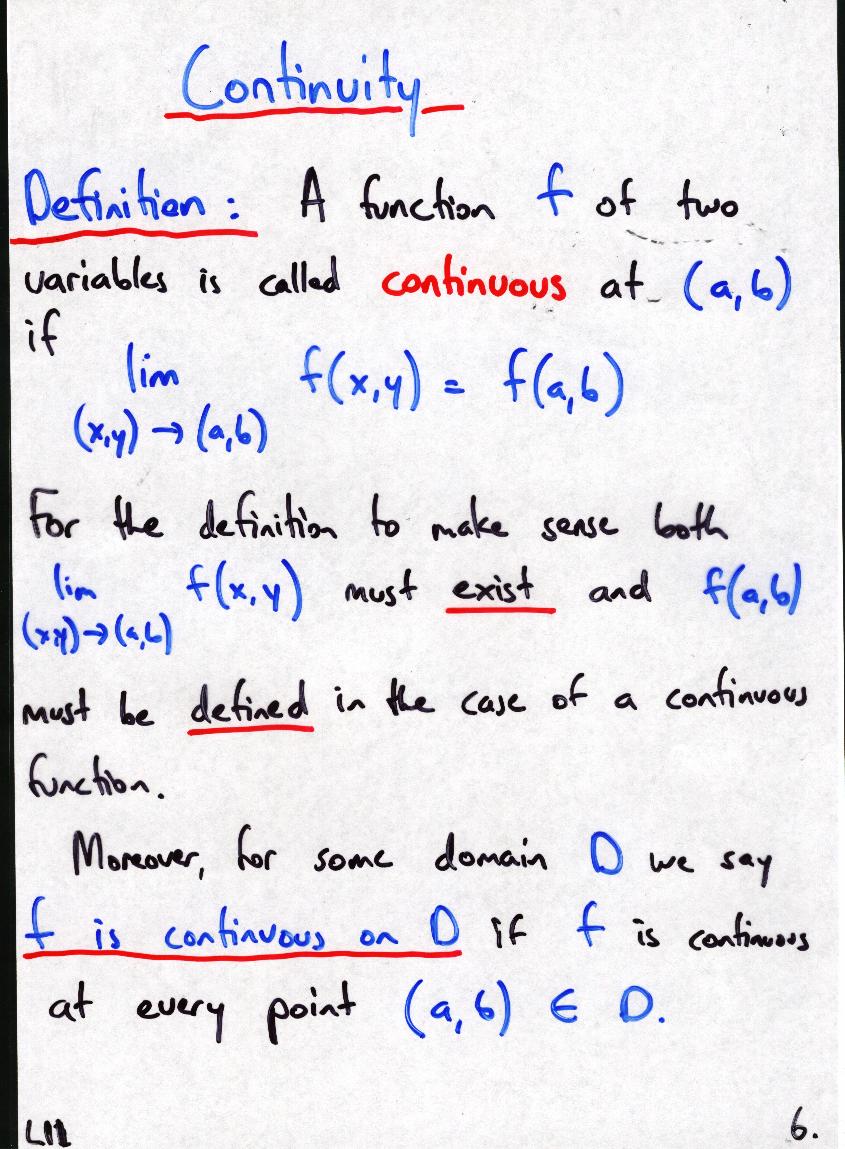 Continuity
Definition: A function f of two
variables is called continuous at (a,b)
if
lim f(x,y) = f(a,b)
(x,y) → (a,b)
For the definition to make sense both
lim f(x,y) must exist and f(a,b)
(x,y)→(a,b)
must be defined in the case of a continuous
function.
Moreover, for some domain D we say
f is continuous on D if f is continuous
at every point (a,b) ∈ D.
6.